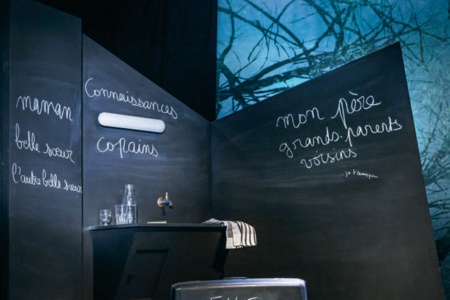 maman
belle sœur
l'autre belle sœur
Connaissances
copains
mon père
grands-parents
voisins